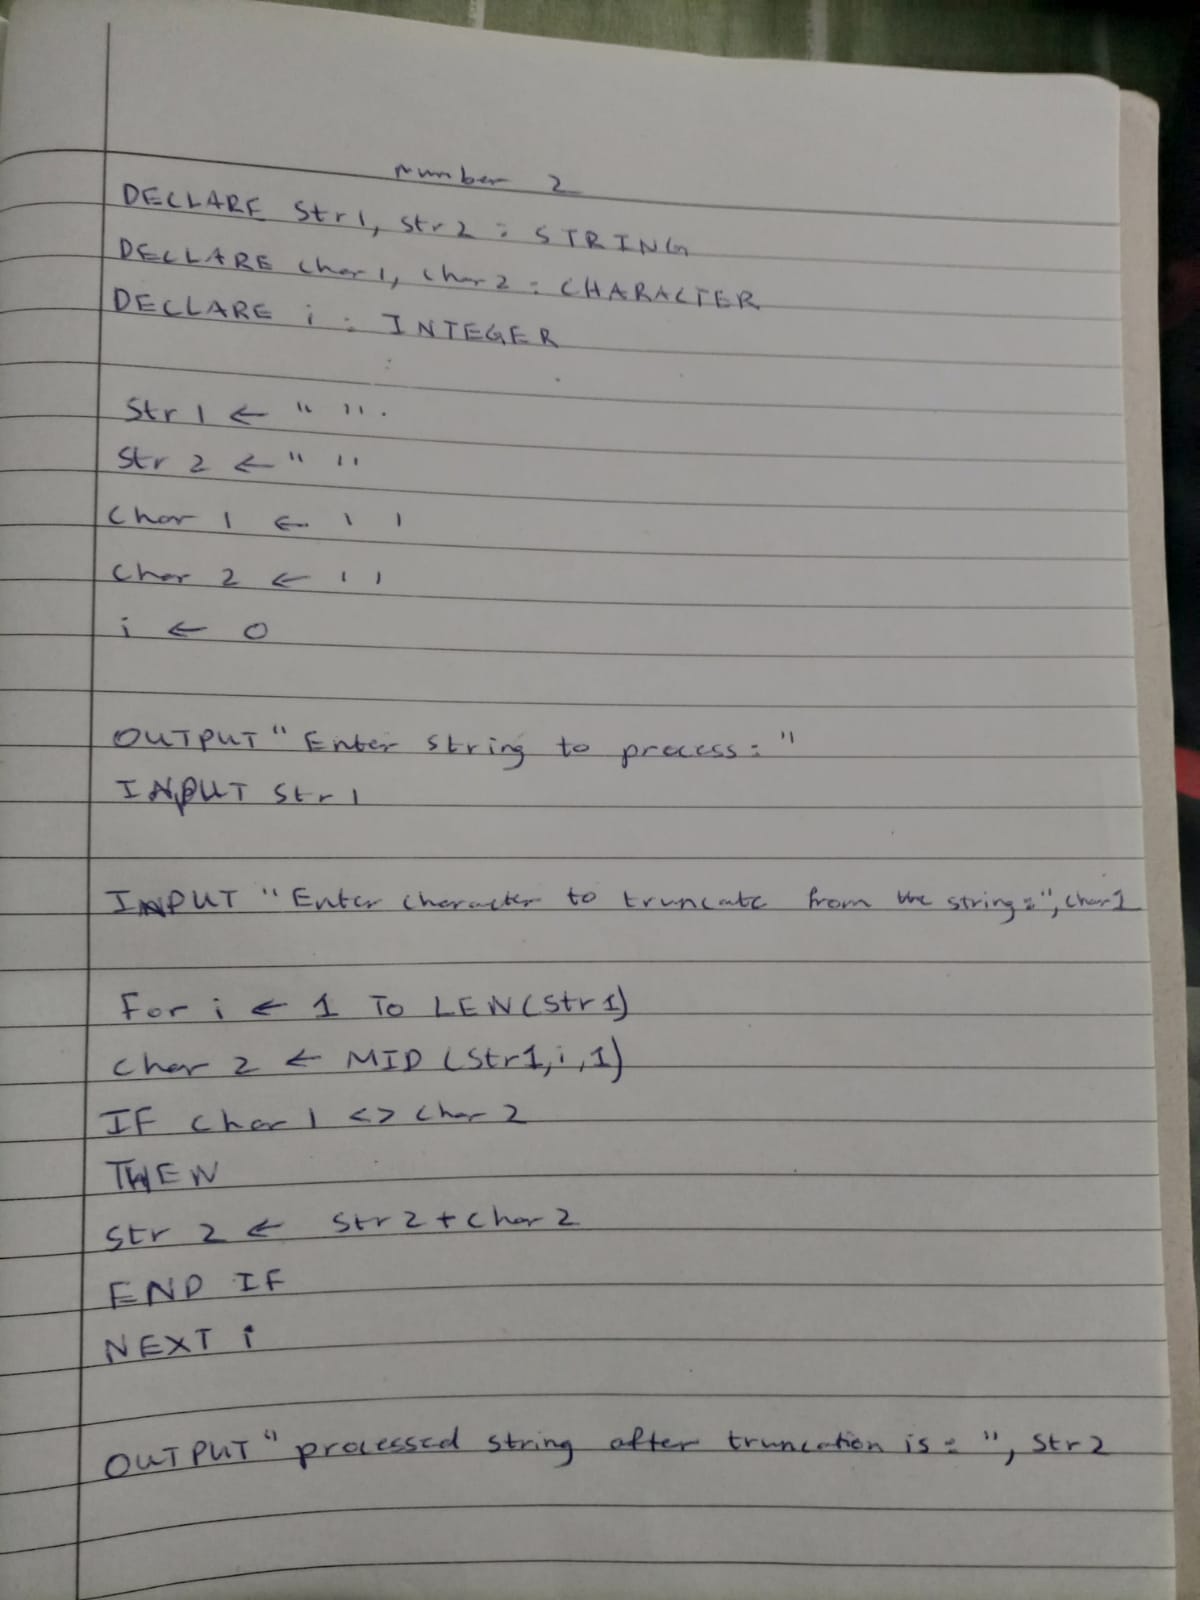 number 2
DECLARE Str1, str2 : STRING
DECLARE char1, char2 : CHARACTER
DECLARE i : INTEGER
Str1 ← " ".
Str2 ← " "
Char 1 ← ' '
Char 2 ← ' '
i ← 0
OUTPUT "Enter string to process: "
INPUT Str1
INPUT "Enter character to truncate from the string:", char1
For i ← 1 To LEN(Str1)
Char 2 ← MID (Str1,i,1)
IF Char1 <> Char2
THEN
Str 2 ← Str2+Char2
END IF
NEXT i
OUTPUT "processed string after truncation is: ", Str2